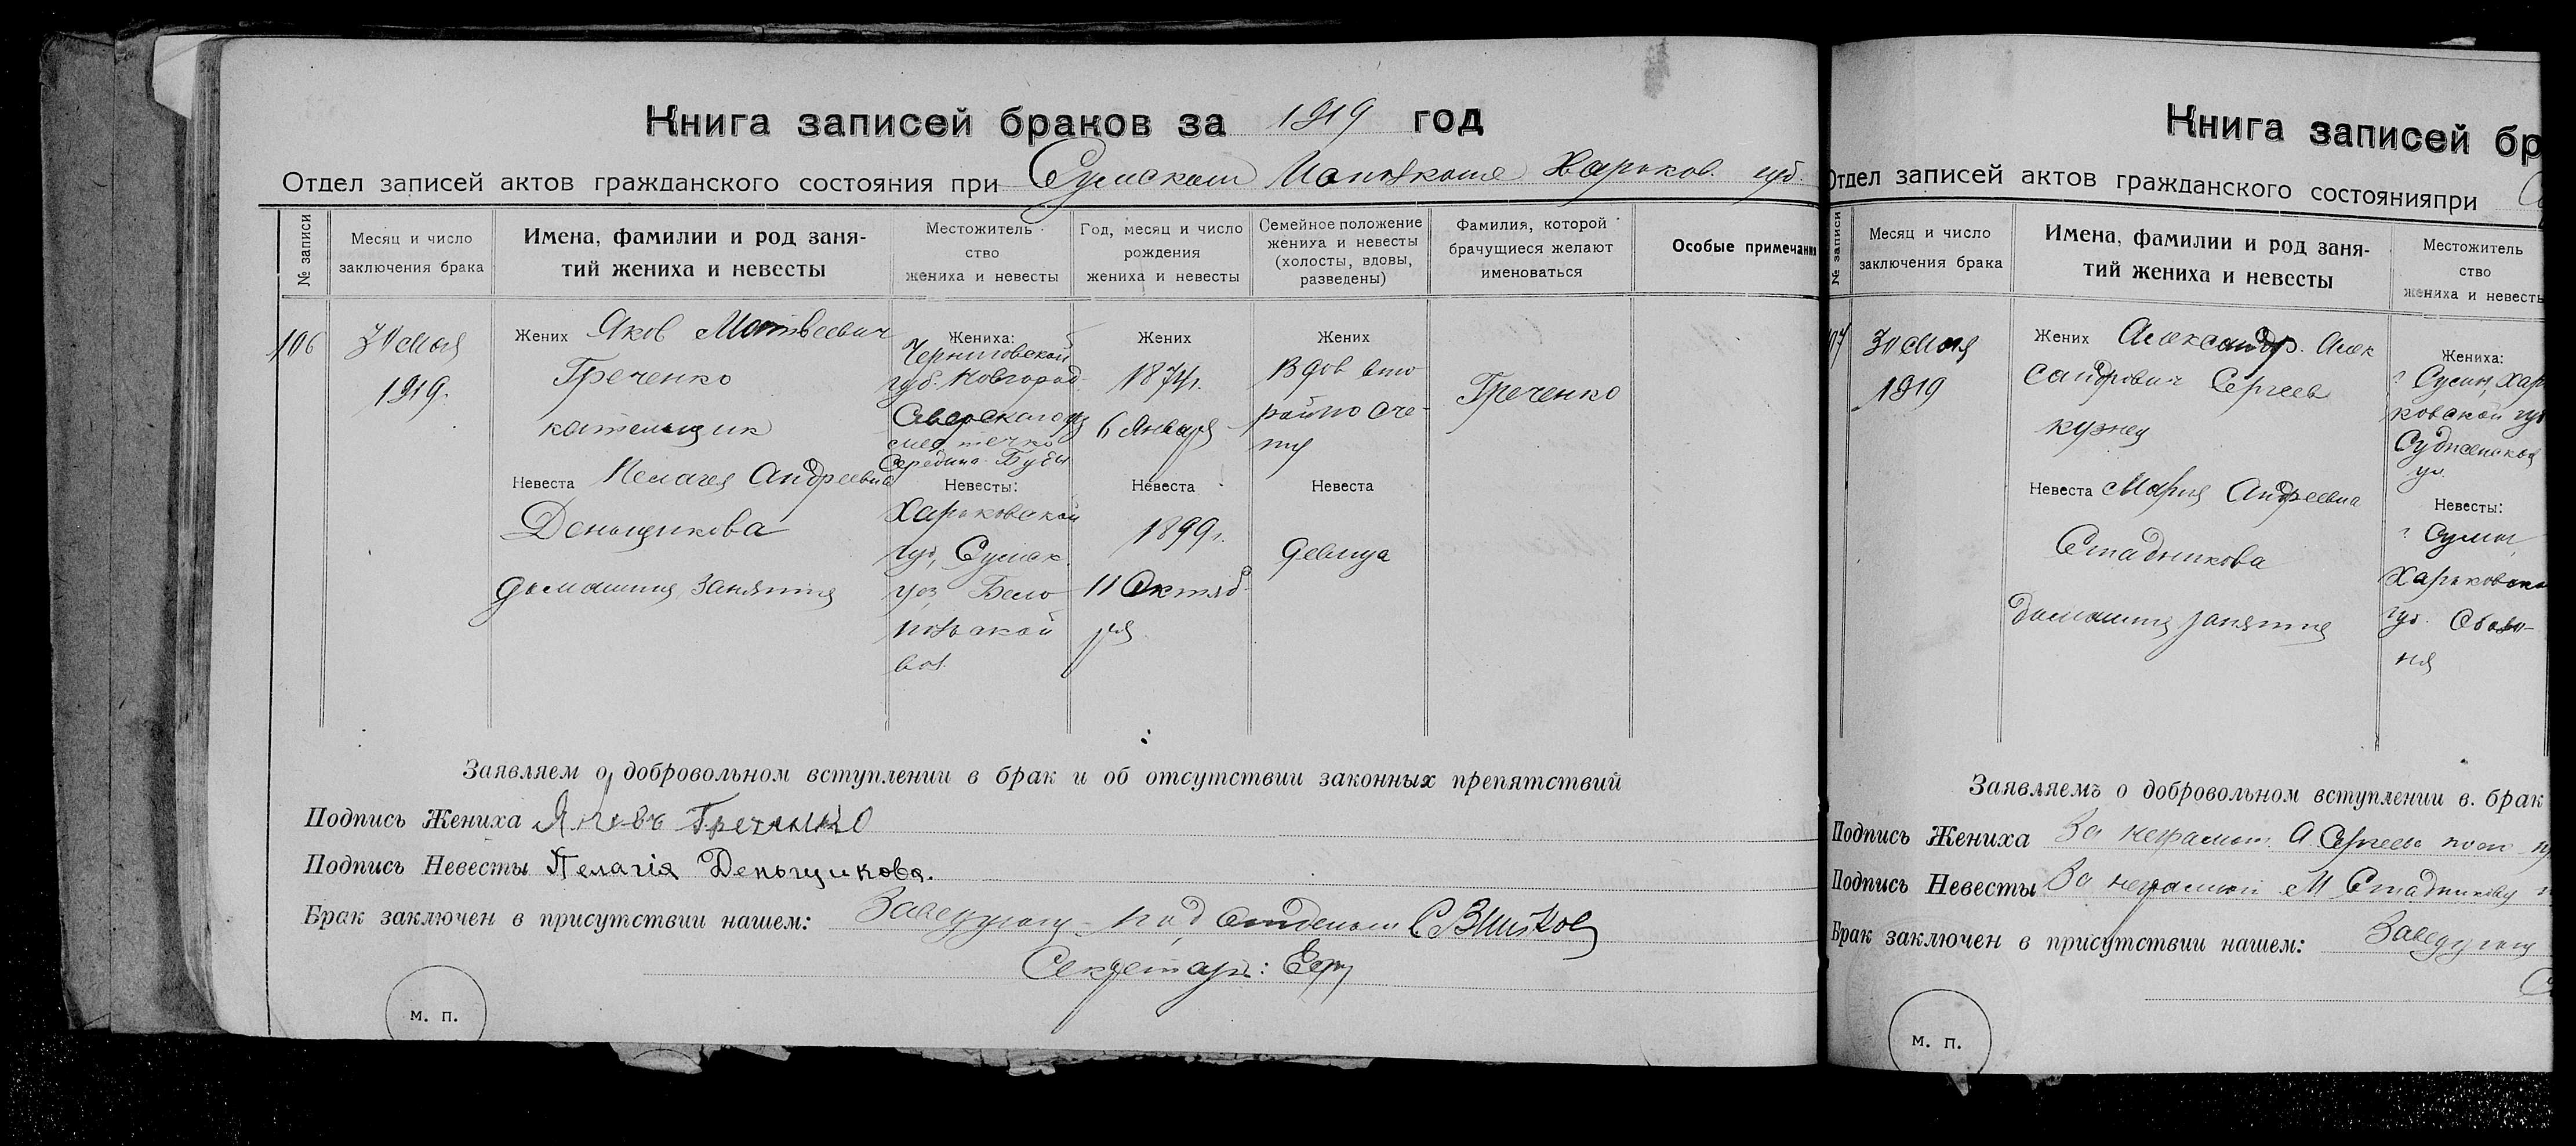 Книга записей браков за 1919 год
Отдел записей актов гражданского состояния при Сумском Исполкоме Харьков. губ.
№ записи
Месяц и число
заключения брака
Имена, фамилии и род заня-
тий жениха и невесты
Местожитель
ство
жениха и невесты
Год, месяц и число
рождения
жениха и невесты
Семейное положение
жениха и невесты
(холосты, вдовы,
разведены)
Фамилия, которой
брачущиеся желают
именоваться
Особые примечани
106
30 мая
1919.
Жених Яков Матвеевич
Греченко
котельщик
Невеста Пелагея Андреевна
Деньщикова
домашние занятия
Жениха:
Черниговской
губ. Новгород-
Северского уз
местечко
Середина-Буды
Невесты:
Харьковской
губ, Сумск.
уез, Бело
польской
вол.
Жених
1874 г.
6 Января
Невеста
1899 г.
11 Октяб-
ря
Жених
Вдов вто
рой по сче-
ту
Невеста
девица
Греченко
Заявляем о добровольном вступлении в брак и об отсутствии законных препятствий
Подпись Жениха Яковъ Греченко
Подпись Невесты Пелагія Деньщикова.
Брак заключен в присутствии нашем: Заведующ. под отделом
Секретарь:
м. п.
Книга записей бр
Отдел записей актов гражданского состоянияпри
№ записи
Месяц и число
заключения брака
Имена, фамилии и род заня-
тий жениха и невесты
Местожитель
ство
жениха и невесты
107
30 мая
1919
Жених Александр. Алек
сандрович Сергеев
кузнец
Невеста Мария Андреевна
Стадникова
домашние занятия
Жениха:
г Сумы, Хар
ковской губ
Судженской
ул.
Невесты:
г Сумы,
Харьковско
губ.
Заявляемъ о добровольном вступлении в. брак
Подпись Жениха За неграмот. А Сергеева
Подпись Невесты За неграмотн М Стадникову
Брак заключен в присутствии нашем: Заведующ
м. п.